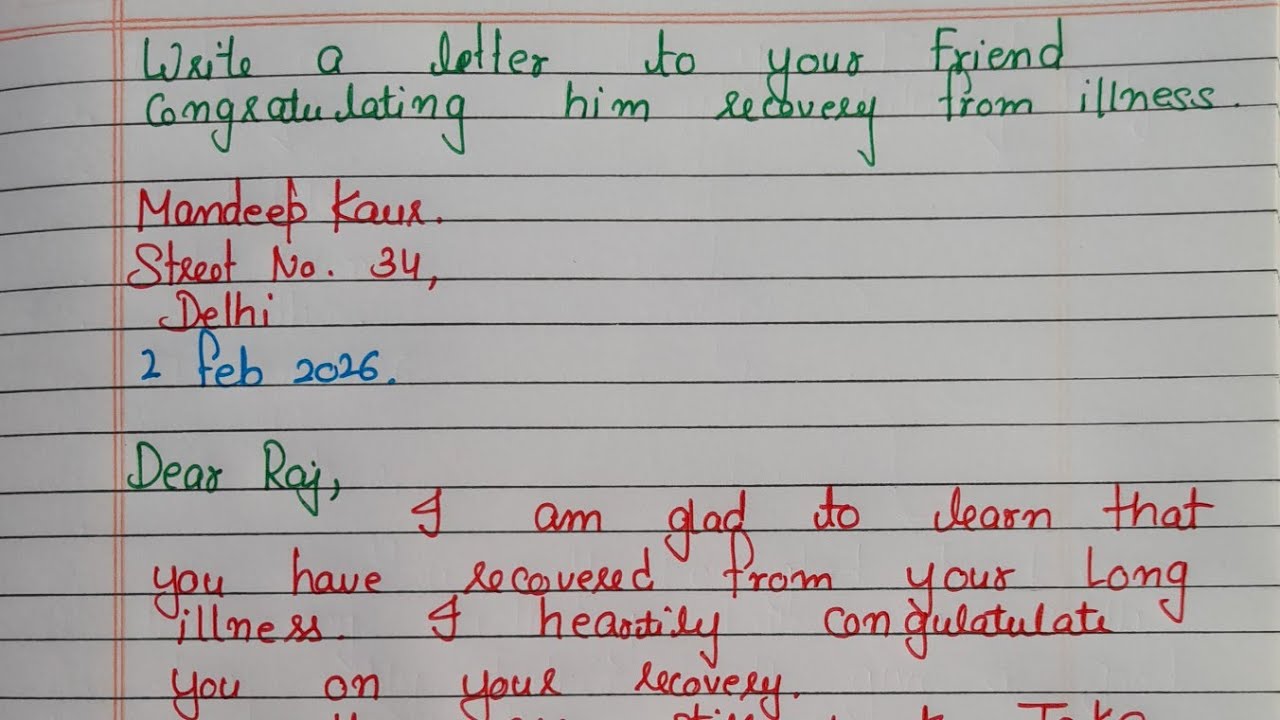 Write a letter to your friend
Congratulating him recovery from illness.
Mandeep Kaur.
Street No. 34,
Delhi
2 Feb 2026.
Dear Raj,
I am glad to learn that
you have recovered from your Long
illness. I heartily congulatulate
you on your recovery.
Take